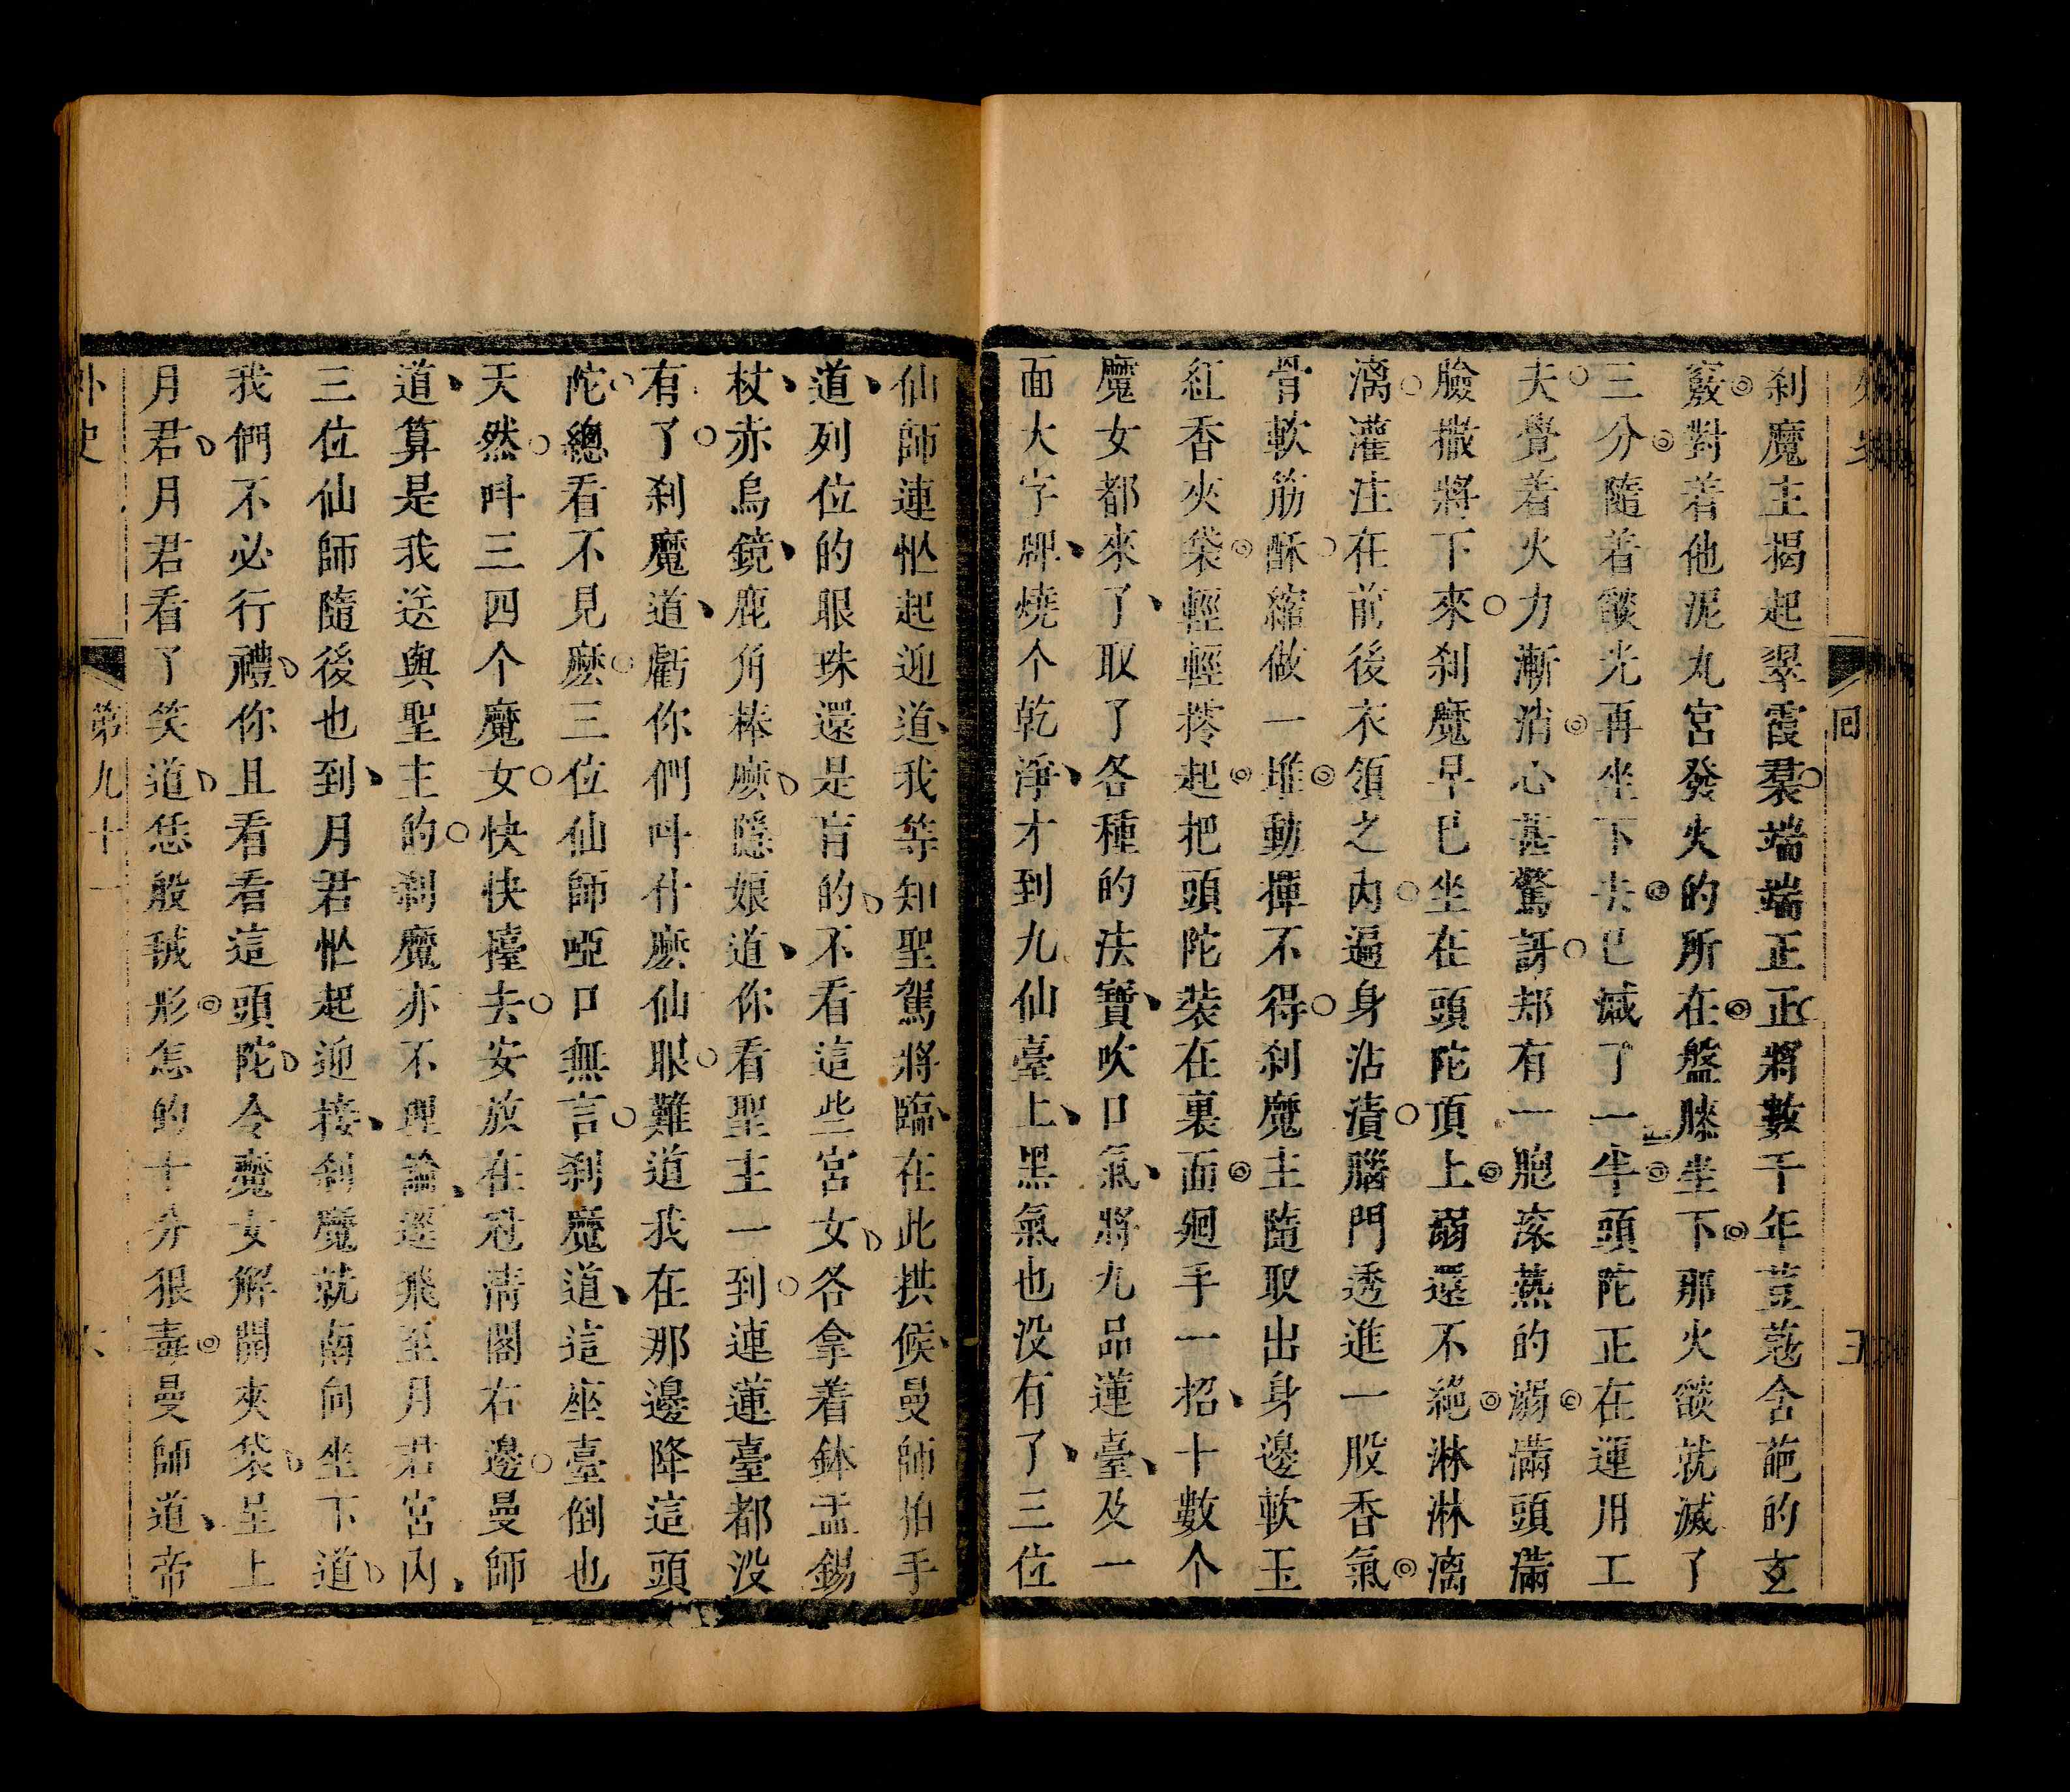 刹魔主揭起翠霞裙端端正正將數千年荳蔻含葩的玄
竅對着他泥丸宮發火的所在盤膝坐下那火燄就滅了
三分隨着燄光再坐下去已滅了一半頭陀正在運用工
夫覺着火力漸消心甚驚訝却有一胞滚熱的溺滿頭滿
臉撒將下來刹魔早已坐在頭陀頂上溺還不絕淋淋漓
漓灌注在前後衣領之内遍身沾漬腦門透進一股香氣
骨軟筋酥縮做一堆動撣不得刹魔主隨取出身邊軟玉
紅香夾袋輕輕撏起把頭陀裝在裏面廻手一招十數个
魔女都來了取了各種的法寶吹口氣將九品蓮臺及一
面大字牌燒个乾淨才到九仙臺上黑氣也没有了三位
仙師連忙起迎道我等知聖駕將臨在此拱候曼師拍手
道列位的眼珠還是盲的不看這些宮女各拿着鉢盂錫
杖赤烏鏡鹿角棒麽隱娘道你看聖主一到連蓮臺都没
有了刹魔道虧你們呌什麽仙眼難道我在那邊降這頭
陀總看不見麽三位仙師啞口無言刹魔道這座臺倒也
天然呌三四个魔女快快擡去安放在冠清閣右邊曼師
道算是我送與聖主的刹魔亦不理論逕飛至月君宮内
三位仙師隨後也到月君忙起迎接刹魔就南向坐下道
我們不必行禮你且看看這頭陀令魔女解開夾袋呈上
月君月君看了笑道恁般䫻形怎的十分狠毒曼師道帝
外史
第九十一